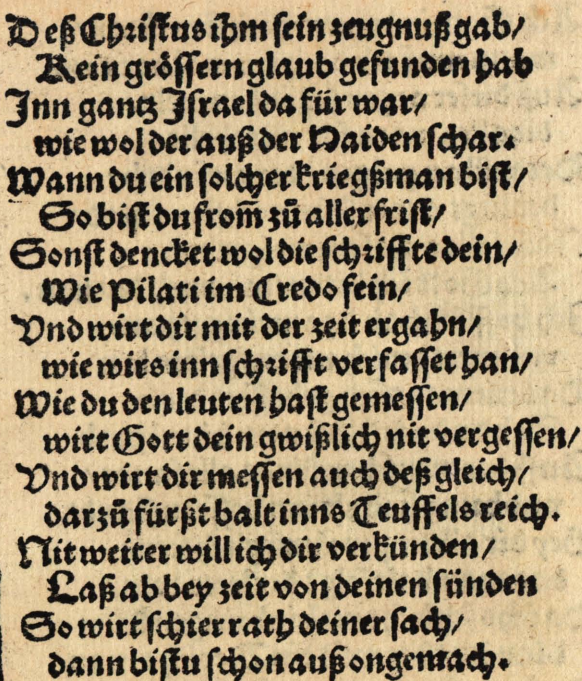 Deß Christus ihm sein zeugnuß gab/
Kein grössern glaub gefunden hab
Inn gantz Israel da für war/
wie wol der auß der Haiden schar.
Wann du ein solcher kriegßman bist/
So bist du from̃ zů aller frist/
Sonst dencket wol die schriffte dein/
Wie Pilati im Credo fein/
Vnd wirt dir mit der zeit ergahn/
wie wirs inn schrifft verfasset han/
Wie du den leuten hast gemessen/
wirt Gott dein gwißlich nit vergessen/
Vnd wirt dir messen auch deß gleich/
darzů fürßt balt inns Teuffels reich.
Nit weiter will ich dir verkünden/
Laß ab bey zeit von deinen sünden
So wirt schier rath deiner sach/
dann bistu schon auß ongemach.